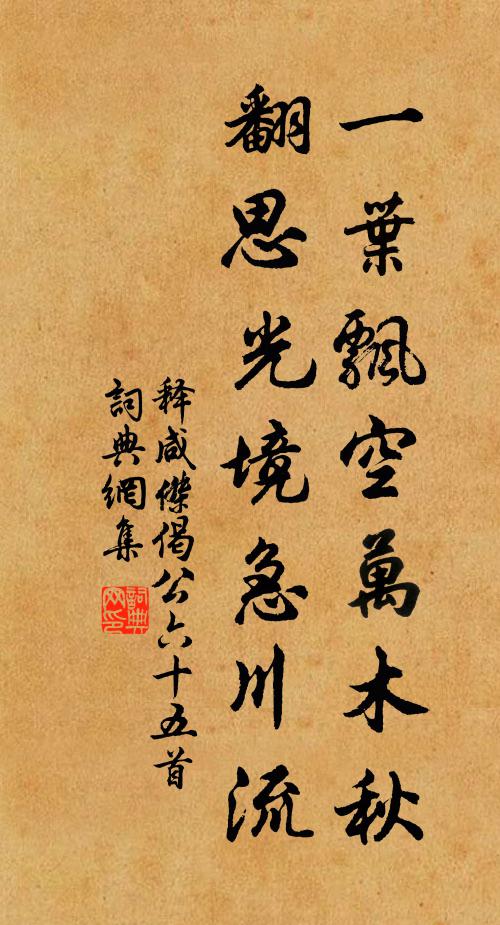 一葉飄空萬木秋
翻思光境急川流
释咸傑偈公六十五首
詞典網集
詞典网印